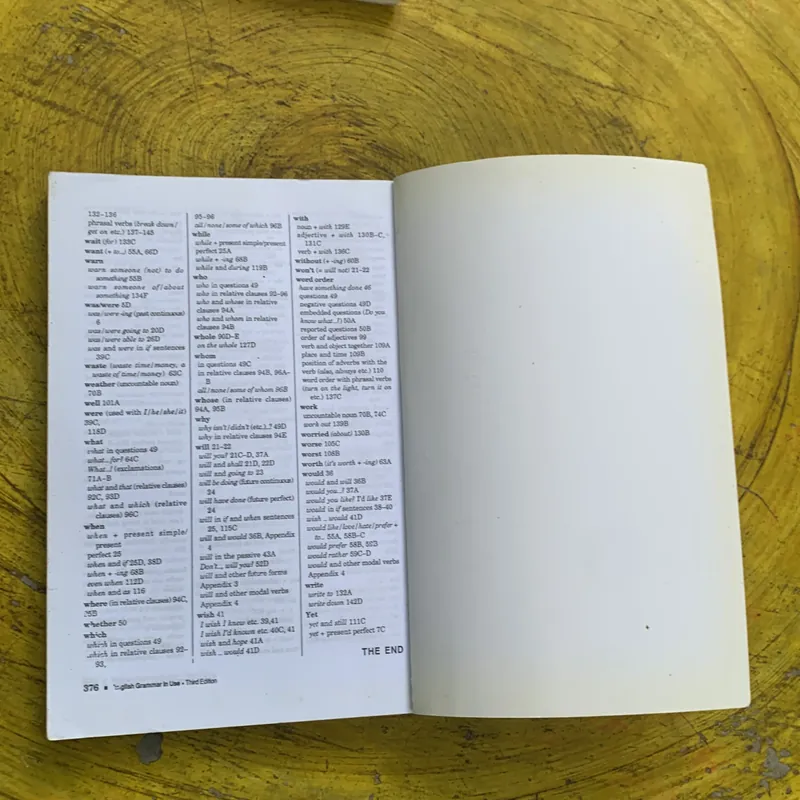 132-136
phrasal verbs (break down/
get on etc.) 137-145
wait (for) 133C
want (+ to...) 55A, 66D
warn
warn someone (not) to do
something 55B
warn someone of/about
something 134F
was/were 5D
was/were-ing (past continuous)
6
was/were going to 20D
was/were able to 26D
was and were in if sentences
39C
waste (waste time/money, a
waste of time/money) 63C
weather (uncountable noun)
70B
well 101A
were (used with I/he/she/it)
39C,
118D
what
what in questions 49
what...for? 64C
What...! (exclamations)
71A-B
what and that (relative clauses)
92C, 93D
what and which (relative
clauses) 96C
when
when + present simple/
present
perfect 25
when and if 25D, 38D
when + -ing 68B
even when 112D
when and as 116
where (in relative clauses) 94C,
95B
whether 50
which
which in questions 49
which in relative clauses 92-
93,
95-96
all/none/some of which 96B
while
while + present simple/present
perfect 25A
while + -ing 68B
while and during 119B
who
who in questions 49
who in relative clauses 92-96
who and whose in relative
clauses 94A
who and whom in relative
clauses 94B
whole 90D-E
on the whole 127D
whom
in questions 49C
in relative clauses 94B, 96A-
B
all/none/some of whom 96B
whose (in relative clauses)
94A, 95B
why
why isn't/didn't (etc.)..? 49D
why in relative clauses 94E
will 21-22
will you? 21C-D, 37A
will and shall 21D, 22D
will and going to 23
will be doing (future continuous)
24
will have done (future perfect)
24
will in if and when sentences
25, 115C
will and would 36B, Appendix
4
will in the passive 43A
Don't..., will you? 52D
will and other future forms
Appendix 3
will and other modal verbs
Appendix 4
wish 41
I wish I knew etc. 39,41
I wish I'd known etc. 40C, 41
wish and hope 41A
wish .. would 41D
with
noun + with 129E
adjective + with 130B-C,
131C
verb + with 136C
without (+ -ing) 60B
won't (= will not) 21-22
word order
have something done 46
questions 49
negative questions 49D
embedded questions (Do you
know what...?) 50A
reported questions 50B
order of adjectives 99
verb and object together 109A
place and time 109B
position of adverbs with the
verb (also, always etc.) 110
word order with phrasal verbs
(turn on the light, turn it on
etc.) 137C
work
uncountable noun 70B, 74C
work out 139B
worried (about) 130B
worse 105C
worst 108B
worth (it's worth + -ing) 63A
would 36
would and will 36B
would you...? 37A
would you like? I'd like 37E
would in if sentences 38-40
wish .. would 41D
would like/love/hate/prefer +
to... 55A, 58B-C
would prefer 58B, 59B
would rather 59C-D
would and other modal verbs
Appendix 4
write
write to 132A
write down 142D
Yet
yet and still 111C
yet + present perfect 7C
THE END
376 ■ English Grammar in Use • Third Edition